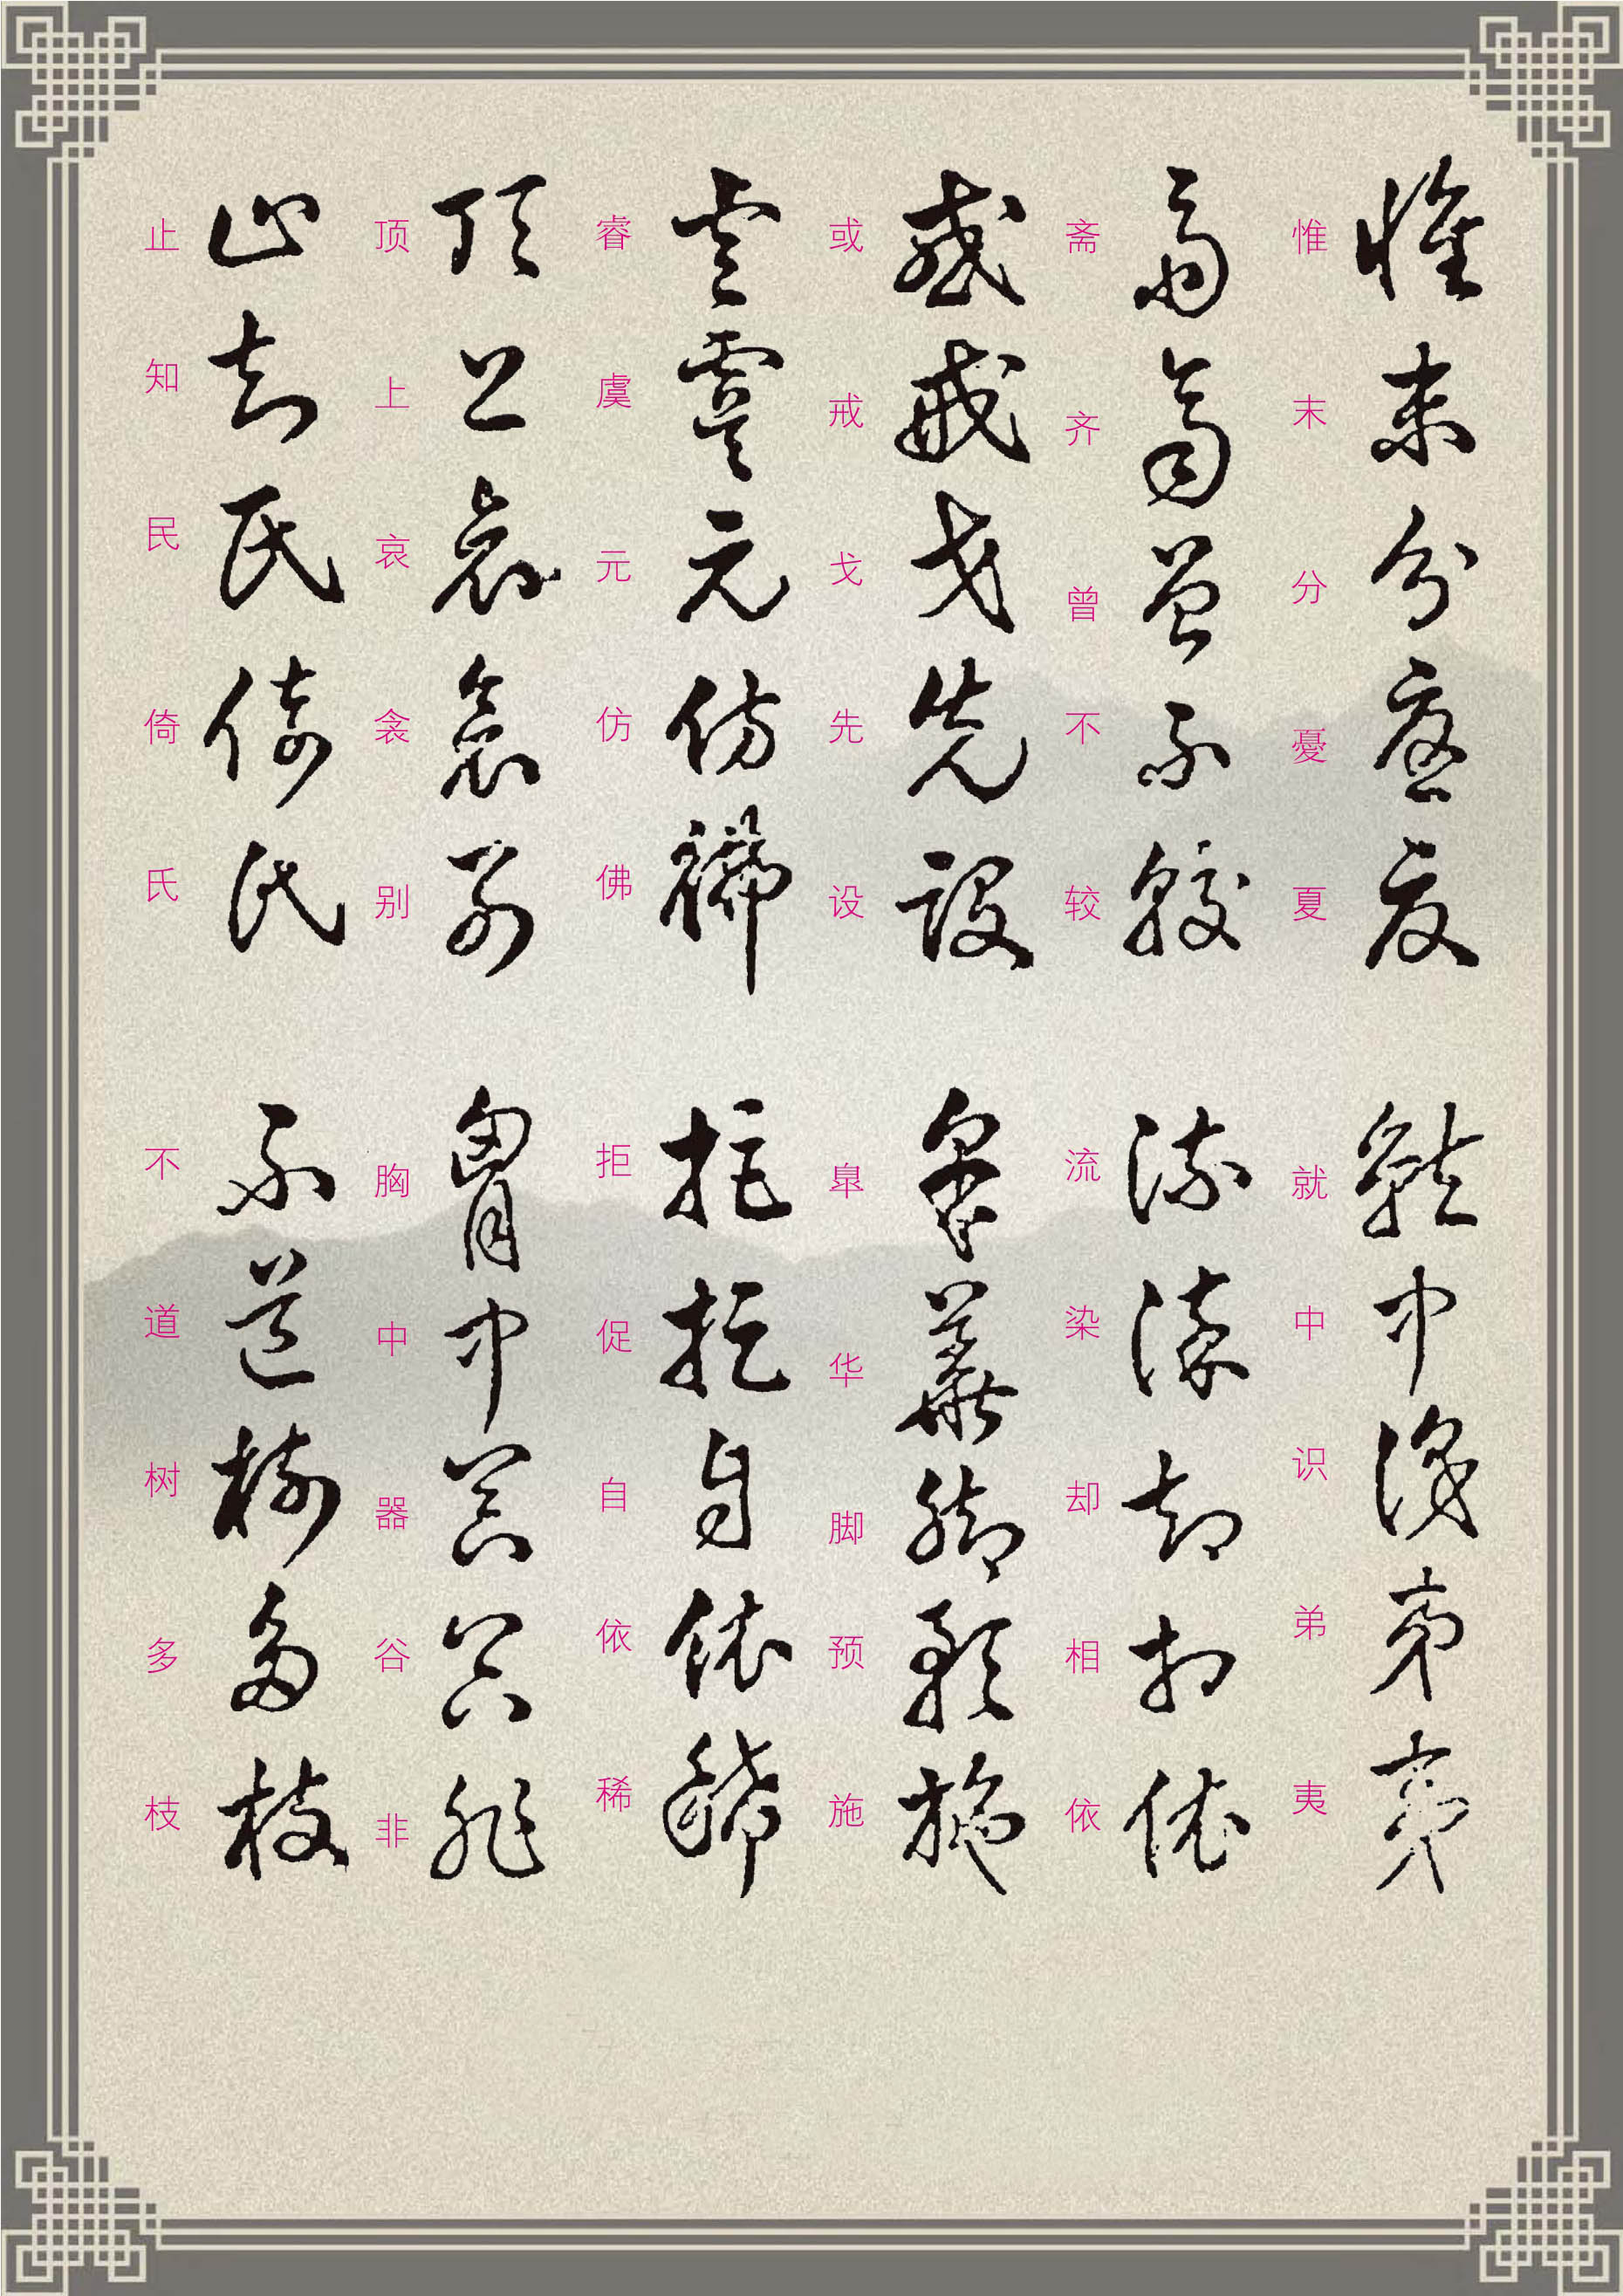 惟末分憂夏
就中识弟夷
斋齐曾不较
流染却相依
或戒戈先设
皐华脚预施
睿虞元仿佛
拒促自依稀
顶上哀衾别
胸中器谷非
止知民倚氏
不道树多枝